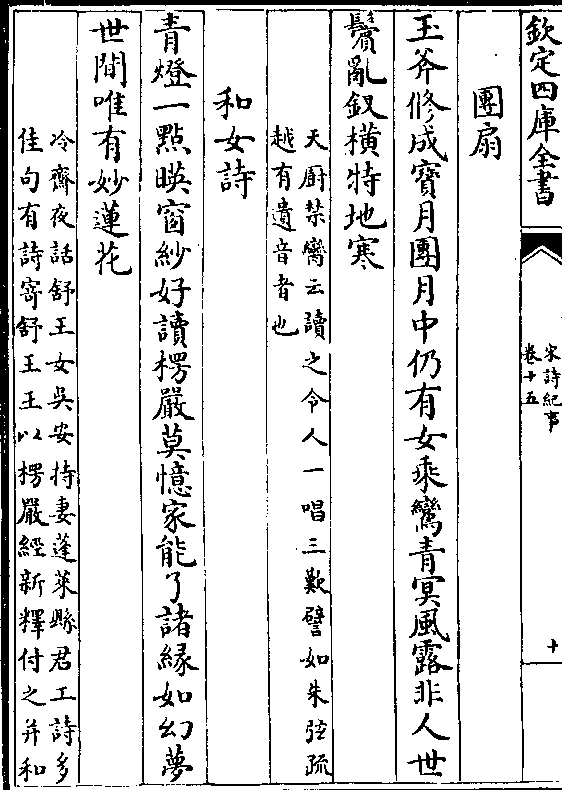 欽定四庫全書
宋詩紀事
卷十五
十
團扇
玉斧修成寶月團月中仍有女乘鸞青冥風露非人世
鬢亂釵橫特地寒
天厨禁臠云讀之令人一唱三歎譬如朱弦疏
越有遺音者也
和女詩
青燈一點暎窗紗好讀楞嚴莫憶家能了諸縁如幻夢
世間唯有妙蓮花
冷齋夜話舒王女吳安持妻蓬萊縣君工詩多
佳句有詩寄舒王王以楞嚴經新釋付之并和